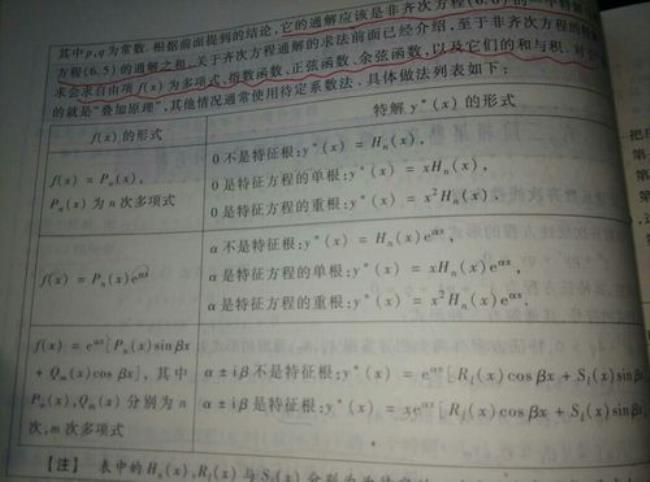 其中p,q为常数.根据前面提到的结论,它的通解应该是非齐次方程(6.6)的一个特解
方程(6.5)的通解之和.关于齐次方程通解的求法前面已经介绍,至于非齐次方程的特解
求会求自由项f(x)为多项式、指数函数、正弦函数、余弦函数,以及它们的和与积.对
的就是"叠加原理",其他情况通常使用待定系数法.具体做法列表如下:
f(x)的形式
特解y*(x)的形式
f(x) = Pₙ(x),
Pₙ(x)为n次多项式
0不是特征根:y*(x) = Hₙ(x),
0是特征方程的单根:y*(x) = xHₙ(x),
0是特征方程的重根:y*(x) = x²Hₙ(x).
f(x) = Pₙ(x)e^{αx}
α不是特征根:y*(x) = Hₙ(x)e^{αx},
α是特征方程的单根:y*(x) = xHₙ(x)e^{αx},
α是特征方程的重根:y*(x) = x²Hₙ(x)e^{αx}.
f(x) = e^{αx}[Pₙ(x)sin βx
+ Qₘ(x)cos βx],其中
Pₙ(x),Qₘ(x)分别为n
次,m次多项式
α ± iβ不是特征根:y*(x) = e^{αx}[Rₗ(x)cos βx + Sₗ(x)sin β
α ± iβ是特征根:y*(x) = xe^{αx}[Rₗ(x)cos βx + Sₗ(x)sin β
【注】 表中的Hₙ(x),Rₗ(x)与Sₗ(x)分别为